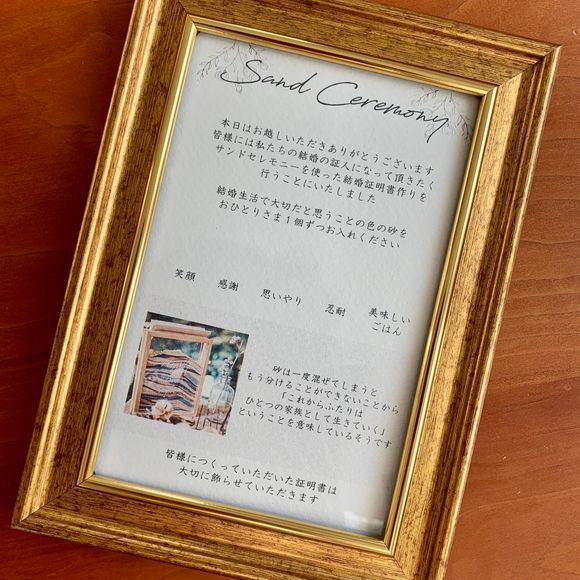 Sand Ceremony
本日はお越しいただきありがとうございます
皆様には私たちの結婚の証人になって頂きたく
サンドセレモニーを使った結婚証明書作りを
行うことにいたしました
結婚生活で大切だと思うことの色の砂を
おひとりさま1個ずつお入れください
笑顔 感謝 思いやり 忍耐 美味しい
ごはん
砂は一度混ぜてしまうと
もう分けることができないことから
「これからふたりは
ひとつの家族として生きていく」
ということを意味しているそうです
皆様につくっていただいた証明書は
大切に飾らせていただきます